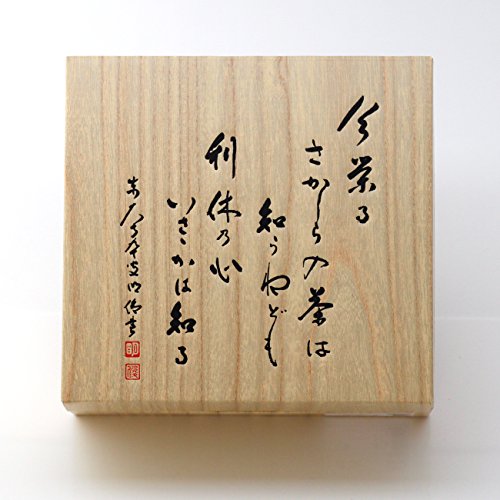 今栄る
さかしらの茶は
知らねども
利休の心
いさゝかは知る